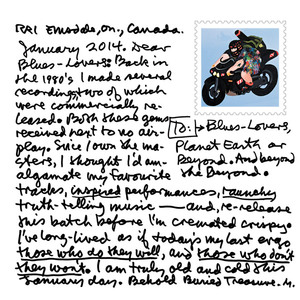 RR1 Emsdale, on., Canada.
January 2014. Dear
Blues-Lovers: Back in
the 1980's I made several
recordings, two of which
were commercially re-
leased. Both these gems
received next to no air-
play. Since I own the ma-
sters, I thought I'd am-
algamate my favourite
tracks, inspired performances, raunchy
truth-telling music — and, re-release
this batch before I'm cremated crispy.
I've long-lived as if today's my last ergo
those who do they will, and those who don't
they won't. I am truly old and cold this
January days. Behold Buried Treasure. M.
To: → Blues-Lovers,
Planet Earth or
Beyond. And beyond
the Beyond.